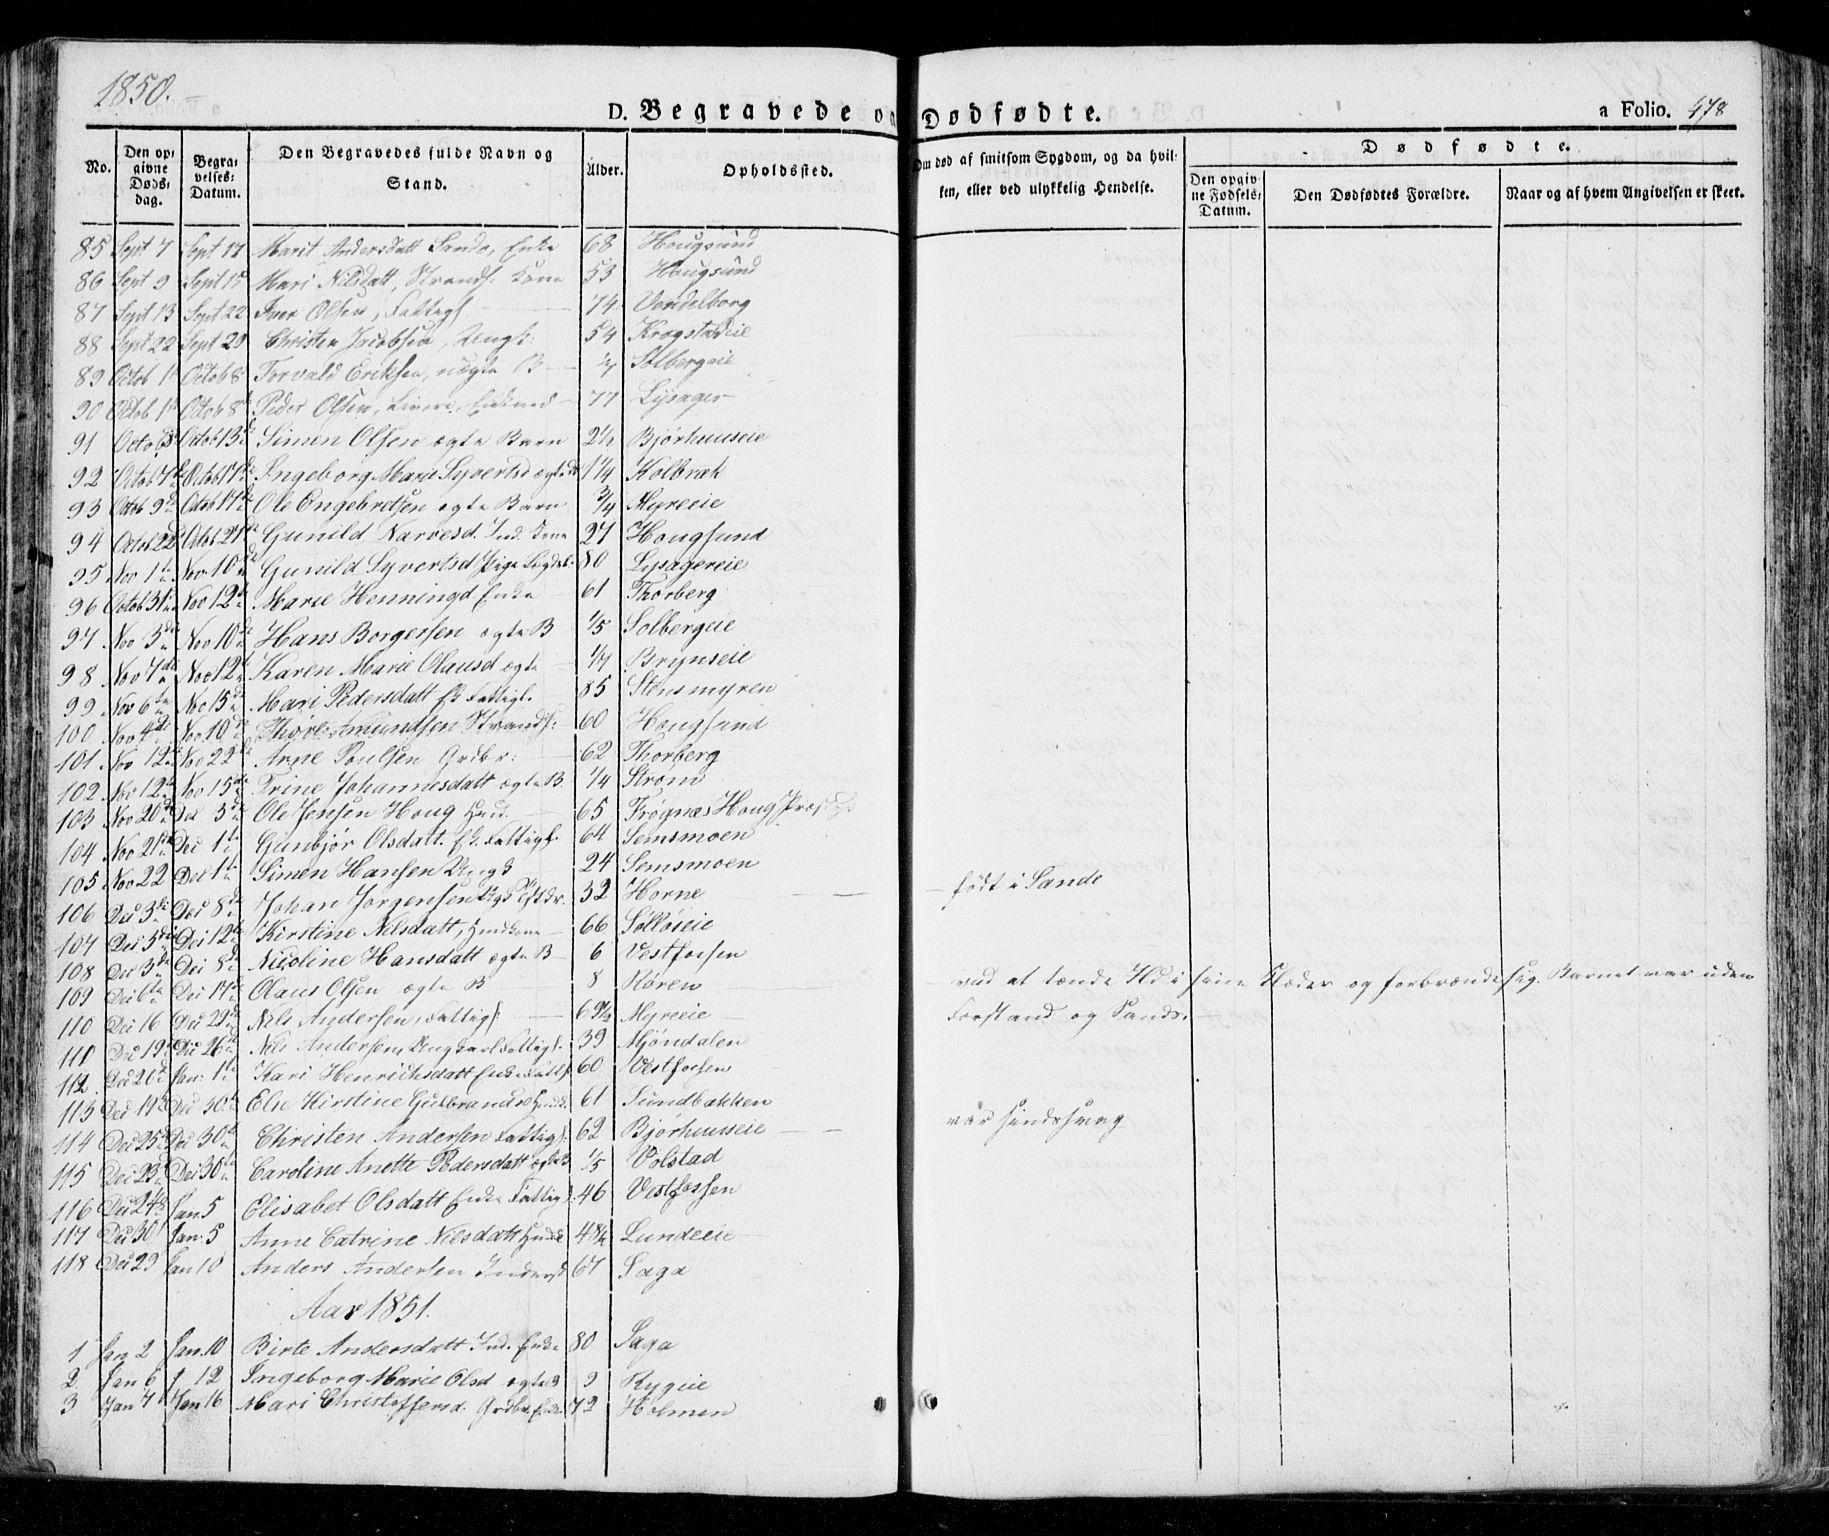 1850.
D. Begravede og Dødfødte.
a Folio. 478
No.
Den opgivne Dødsdag.
Begravelses-Datum.
Den Begravedes fulde Navn og Stand.
Alder.
Opholdssted.
Om død af smitsom Sygdom, og da hvilken, eller ved ulykkelig Hendelse.
Dødfødte.
Den opgivne Fødsels-Datum.
Den Dødfødtes Forældre.
Naar og af hvem Angivelsen er skeet.
85 Sept 7 Sept 17 Marit Andersdatt Sando, Enke 68 Hougsund
86 Sept 9 Sept 15 Mari Nilsdatt, Strands. Kone 53 Hougsund
87 Sept 13 Sept 22 Iver Olsen, Fattigl 74 Vendelborg
88 Sept 22 Sept 29 Christen Jacobsen, Ungk: 54 Krogstadeie
89 Octob 1 Octob 8 Torvald Eriksen, uægte B Solbergeie
90 Octob 1 Octob 8 Peder Olsen, Enkemd 77 Lysager
91 Octo 8 Octob 13 Simen Olsen ægte Barn 2½ Bjørhuuseie
92 Octob 7 Octob 17 Ingeborg Marie Syvertsd ægte B 1¼ Kolbræk
93 Octob 9 Octob 17 Ole Engebretsen ægte Barn ¾ Myreeie
94 Octob 22 Octob 27 Gunild Narvesd. Ind. Kone 27 Hougsund
95 Nov 1 Nov 10 Gunild Syvertsd Pige 80 Lysagereie
96 Octob 31 Nov 12 Marie Henningd Enke 61 Thorberg
97 Nov 3 Nov 10 Hans Borgersen ægte B 1/5 Solbergeie
98 Nov 7 Nov 12 Karen Marie Olausd ægte 1/7 Brynseie
99 Nov 6 Nov 15 Mari Pedersdatt Ek Fattigl. 85 Stensmyren
100 Nov 4 Nov 10 Thore Amundsen Strands: 60 Hougsund
101 Nov 12 Nov 22 Arne Poulsen Grdbr: 62 Thorberg
102 Nov 12 Nov 15 Trine Johannesdatt ægte B. ¼ Strøm
103 Nov 20 Dec 3 Ole Jensen Houg Hmd. 65 Frøgnæs Houg
104 Nov 21 Dec 1 Gunbjør Olsdatt. Ek. Fattigl. 64 Semsmoen
105 Nov 22 Dec 1 Simen Hansen Ungk 24 Semsmoen
106 Dec 3 Dec 8 Johan Jorgensen 32 Horne født i Sande
107 Dec 5 Dec 12 Kirstine Nilsdatt, Hmdkone 66 Solløseie
108 Dec 3 Dec 8 Nicoline Hansdatt ægte B 6 Vestfossen
109 Dec 6 Dec 17 Olaus Olsen ægte B 8 Røren ved at tænde Ild i sine Klæder og forbrænde sig. Barnet var uden
Forstand og Sands.
110 Dec 16 Dec 29 Nils Andersen, Fattigl: 69½ Myreeie
111 Dec 19 Dec 26 Nils Andersen, Ungkarl Fattigl. 39 Mjøndalen
112 Dec 20 Jan: 1 Kari Henrichsdatt Enke Fattl. 60 Vestfossen
113 Dec 19 Dec 30 Else Kirstine Gulbrands Hmdk 61 Sundbakken
114 Dec 25 Dec 30 Christen Andersen Fattigl: 62 Bjørhuuseie var sindssvag
115 Dec 23 Dec 30 Caroline Anette Pedersdatt ægte B 1/5 Volstad
116 Dec 24 Jan 5 Elisabet Olsdatt Enke Fattigl. 46 Vestfossen
117 Dec 30 Jan: 5 Anne Catrine Nilsdatt Hmdk 48¼ Lundeeie
118 Dec 29 Jan 10 Anders Andersen Inderst 67 Saga
Aar 1851.
1 Jan 2 Jan. 10 Birte Andersdatt Ind. Enke 80 Saga
2 Jan 6 J 12 Ingeborg Marie Olsd ægte B 9 Rygeie
3 Jan 7 Jan 16 Mari Christoffersd. Grdbr. Enke 72 Holmen